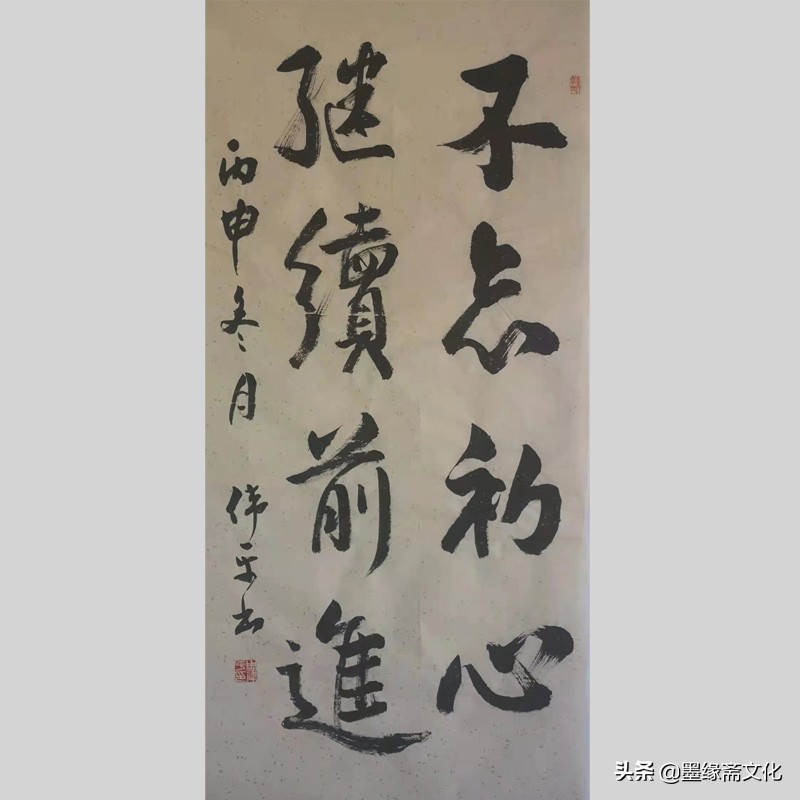 不忘初心
继續前進
丙申冬月 伟平书
头条 @墨缘斋文化